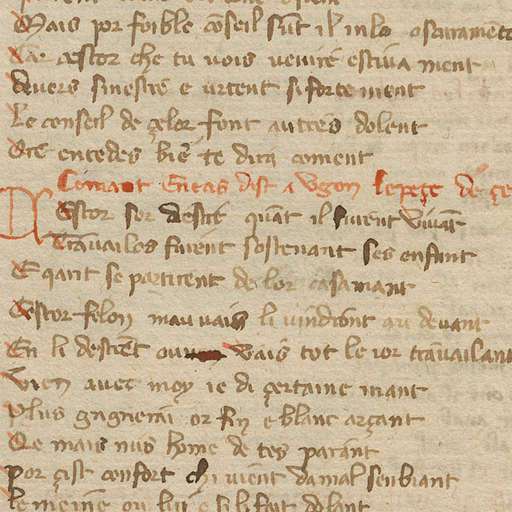 Mais por foible conseil sunt il in lo
Car cestor che tu vois venire
devers sinestre e urtent si forte ment
Le conseil de çelor font autres dolent
Se entedes bien te dirai coment
Comant Eneas dist a
Estor sor destre quant il furent vivant
Travailes furent sostenant ses enfant
E qant se partirent de lor casamant
Cestor felon mauvais li vindront au devant
En li destret vais tot le ior travailant
Vien avec moy ie di certaine mant
Plus gagnerai or fin e blanc arçant
Qe mais nus home de tes parant
Por çist confort chi vient da mal senbiant
le meine ou lui e si li fait dolant